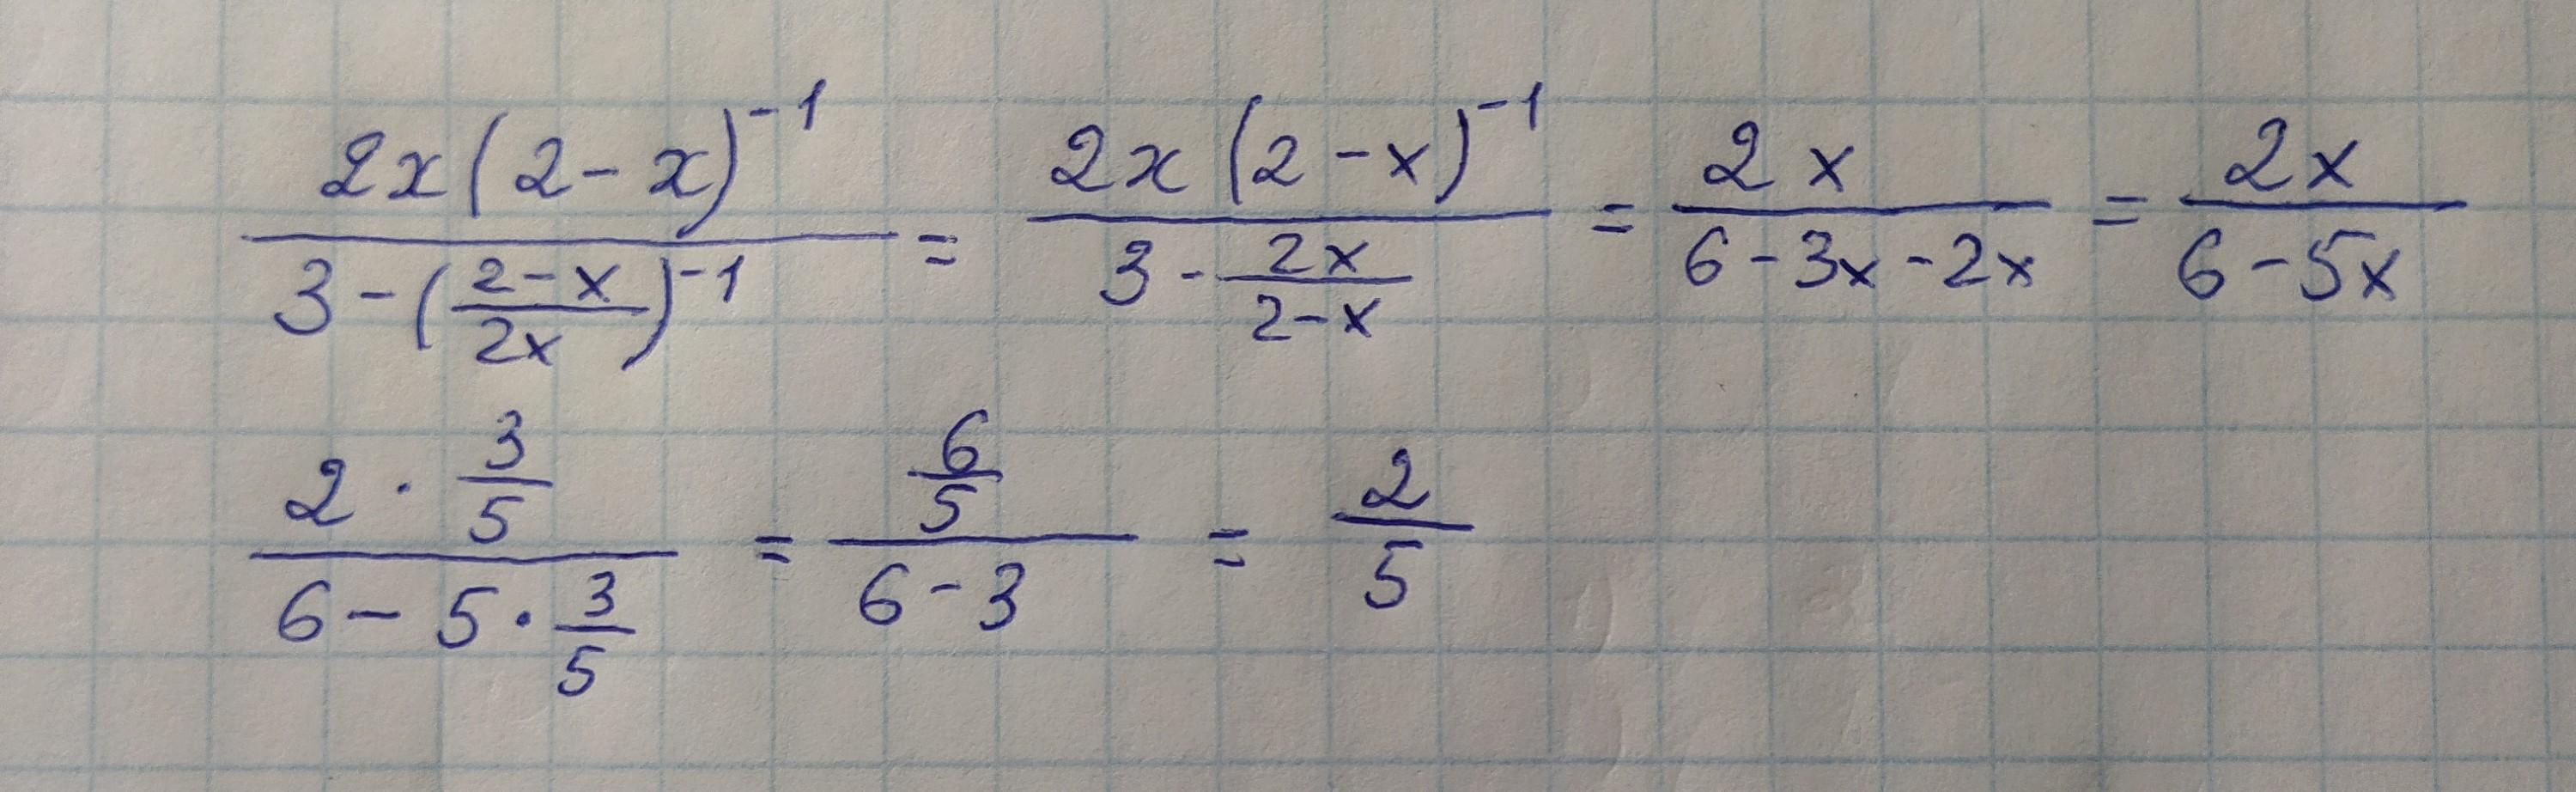 \frac{2x(2-x)^{-1}}{3-(\frac{2-x}{2x})^{-1}} = \frac{2x(2-x)^{-1}}{3-\frac{2x}{2-x}} = \frac{2x}{6-3x-2x} = \frac{2x}{6-5x}
\frac{2 \cdot \frac{3}{5}}{6-5 \cdot \frac{3}{5}} = \frac{\frac{6}{5}}{6-3} = \frac{2}{5}